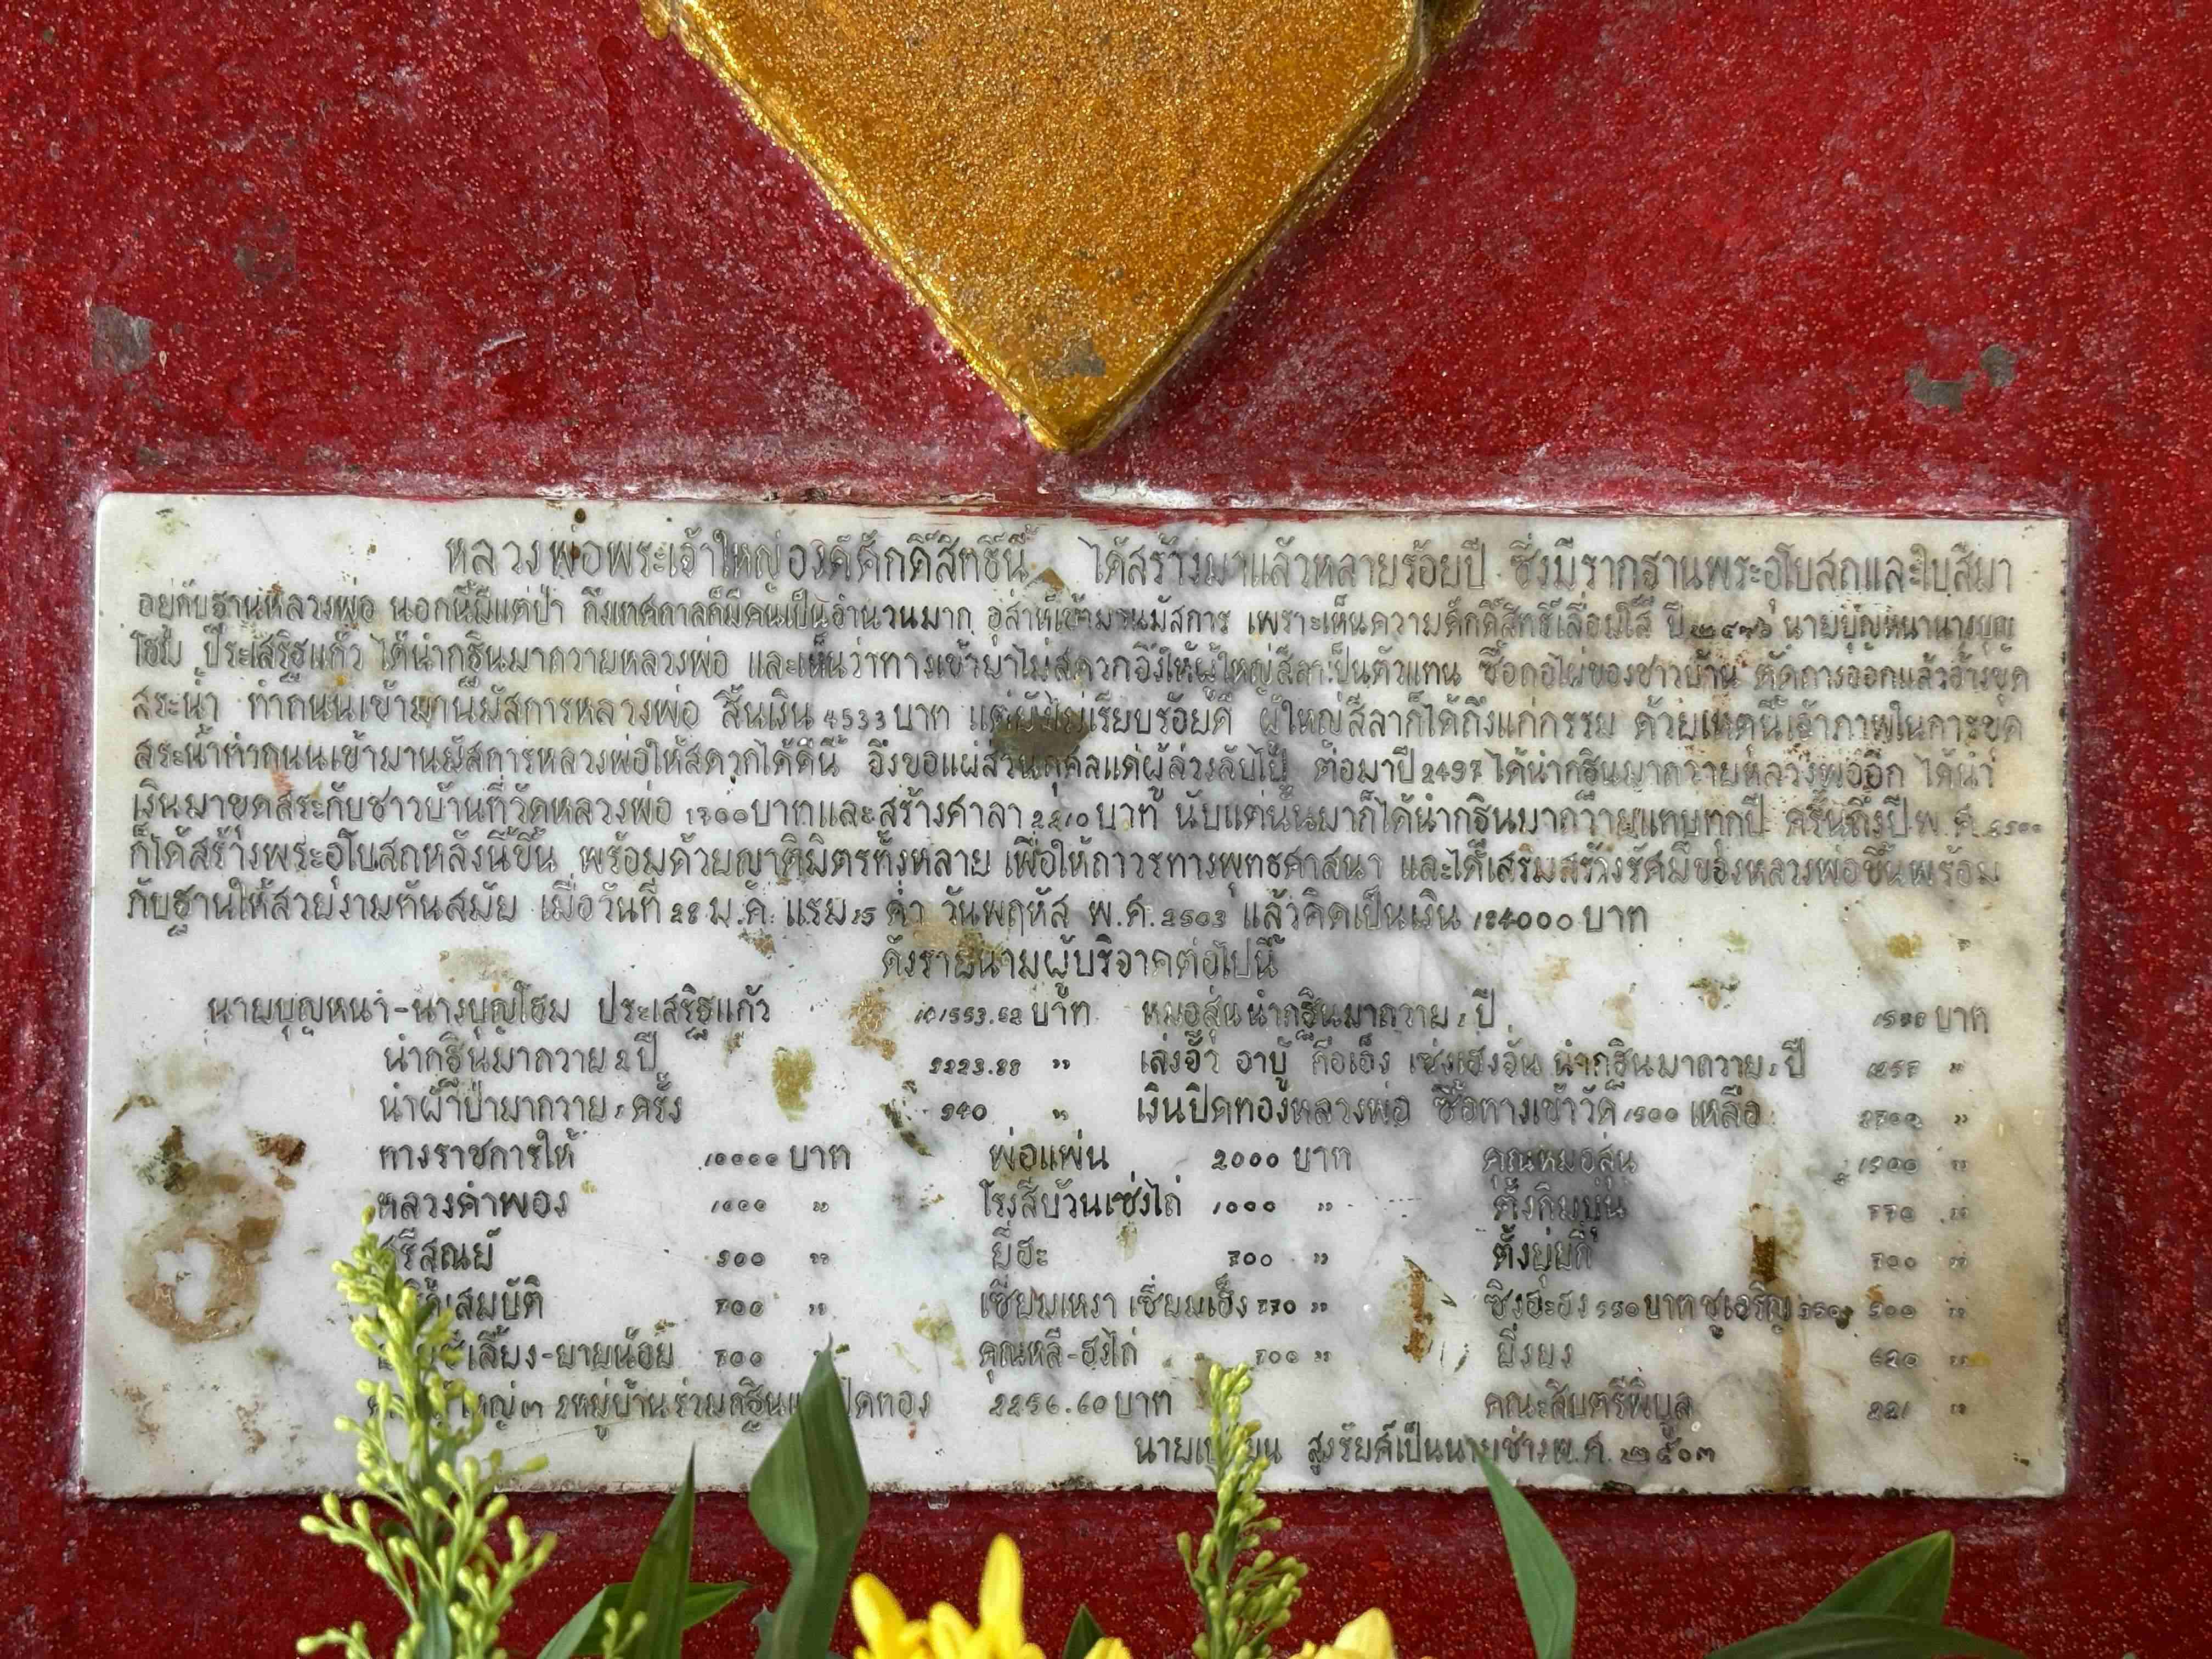 หลวงพ่อพระเจ้าใหญ่องค์ศักดิ์สิทธิ์นี้ ได้สร้างมาแล้วหลายร้อยปี ซึ่งมีรากฐานพระอุโบสถและใบสีมา
อยู่กับฐานหลวงพ่อ นอกนี้มีแต่ป่า ถึงเทศกาลก็มีคนเป็นจำนวนมาก อุส่าห์เข้ามานมัสการ เพราะเห็นความศักดิ์สิทธิ์เลื่อมใส ปี ๒๔๙๖ นายบุญหนานางบุญ
โฮม ประเสริฐแก้ว ได้นำกฐินมาถวายหลวงพ่อ และเห็นว่าทางเข้ามาไม่สดวกจึงให้ผู้ใหญ่สีลาเป็นตัวแทน ซื้อกอไผ่ของชาวบ้าน ตัดถางออกแล้วจ้างขุด
สระน้ำ ทำถนนเข้ามานมัสการหลวงพ่อ สิ้นเงิน 4533 บาท แต่ยังไม่เรียบร้อยดี ผู้ใหญ่สีลาก็ได้ถึงแก่กรรม ด้วยเหตุนี้เจ้าภาพในการขุด
สระน้ำทำถนนเข้ามานมัสการหลวงพ่อให้สดวกได้ดีนี้ จึงขอแผ่ส่วนกุศลแด่ผู้ล่วงลับไป ต่อมาปี 2497 ได้นำกฐินมาถวายหลวงพ่ออีก ได้นำ
เงินมาขุดสระกับชาวบ้านที่วัดหลวงพ่อ 1700 บาทและสร้างศาลา 2210 บาท นับแต่นั้นมาก็ได้นำกฐินมาถวายแทบทุกปี ครั้นถึงปี พ.ศ. 2500
ก็ได้สร้างพระอุโบสถหลังนี้ขึ้น พร้อมด้วยญาติมิตรทั้งหลาย เพื่อให้ถาวรทางพุทธศาสนา และได้เสริมสร้างรัศมีของหลวงพ่อขึ้นพร้อม
กับฐานให้สวยงามทันสมัย เมื่อวันที่ 28 ม.ค. แรม 15 ค่ำ วันพฤหัส พ.ศ. 2503 แล้วคิดเป็นเงิน 184000 บาท
ดังรายนามผู้บริจาคต่อไปนี้
นายบุญหนา-นางบุญโฮม ประเสริฐแก้ว 101553.62 บาท หมอสุ่นนำกฐินมาถวาย 1 ปี บาท
นำกฐินมาถวาย 2 ปี 2223.88 " เล่งจั๊ว อาบู๊ กือเอ็ง เซ่งเฮงจั่น นำกฐินมาถวาย 1 ปี "
นำผ้าป่ามาถวาย 1 ครั้ง 940 " เงินปิดทองหลวงพ่อ ซื้อทางเข้าวัด 1500 เหลือ 2700 "
ทางราชการให้ 10000 บาท พ่อแพ่น 2000 บาท คุณหมอสุ่น 1900 "
หลวงคำพอง 1000 " โรงสีบ้วนเซ่งไถ่ 1000 " ตั้งกิมปุ่น 770 "
ศรีสุณย์ 900 " ยี่ฮะ 700 " ตั้งยุ่ยกี่ 700 "
เสมบัติ 700 " เซี่ยมเหงา เซี่ยมเฮ็ง 770 " ซิงฮะฮง 550 บาท ชูเจริญ 350 500 "
เลี้ยง-ยายน้อย 700 " คุณหลี-ฮงไถ่ 700 " ยิ่งยง 620 "
2 หมู่บ้านร่วมกฐิน ปิดทอง 2256.60 บาท คณะสิบตรีพิบูล 221 "
สุงรัยศ์เป็นนายช่าง พ.ศ. ๒๕๐๓